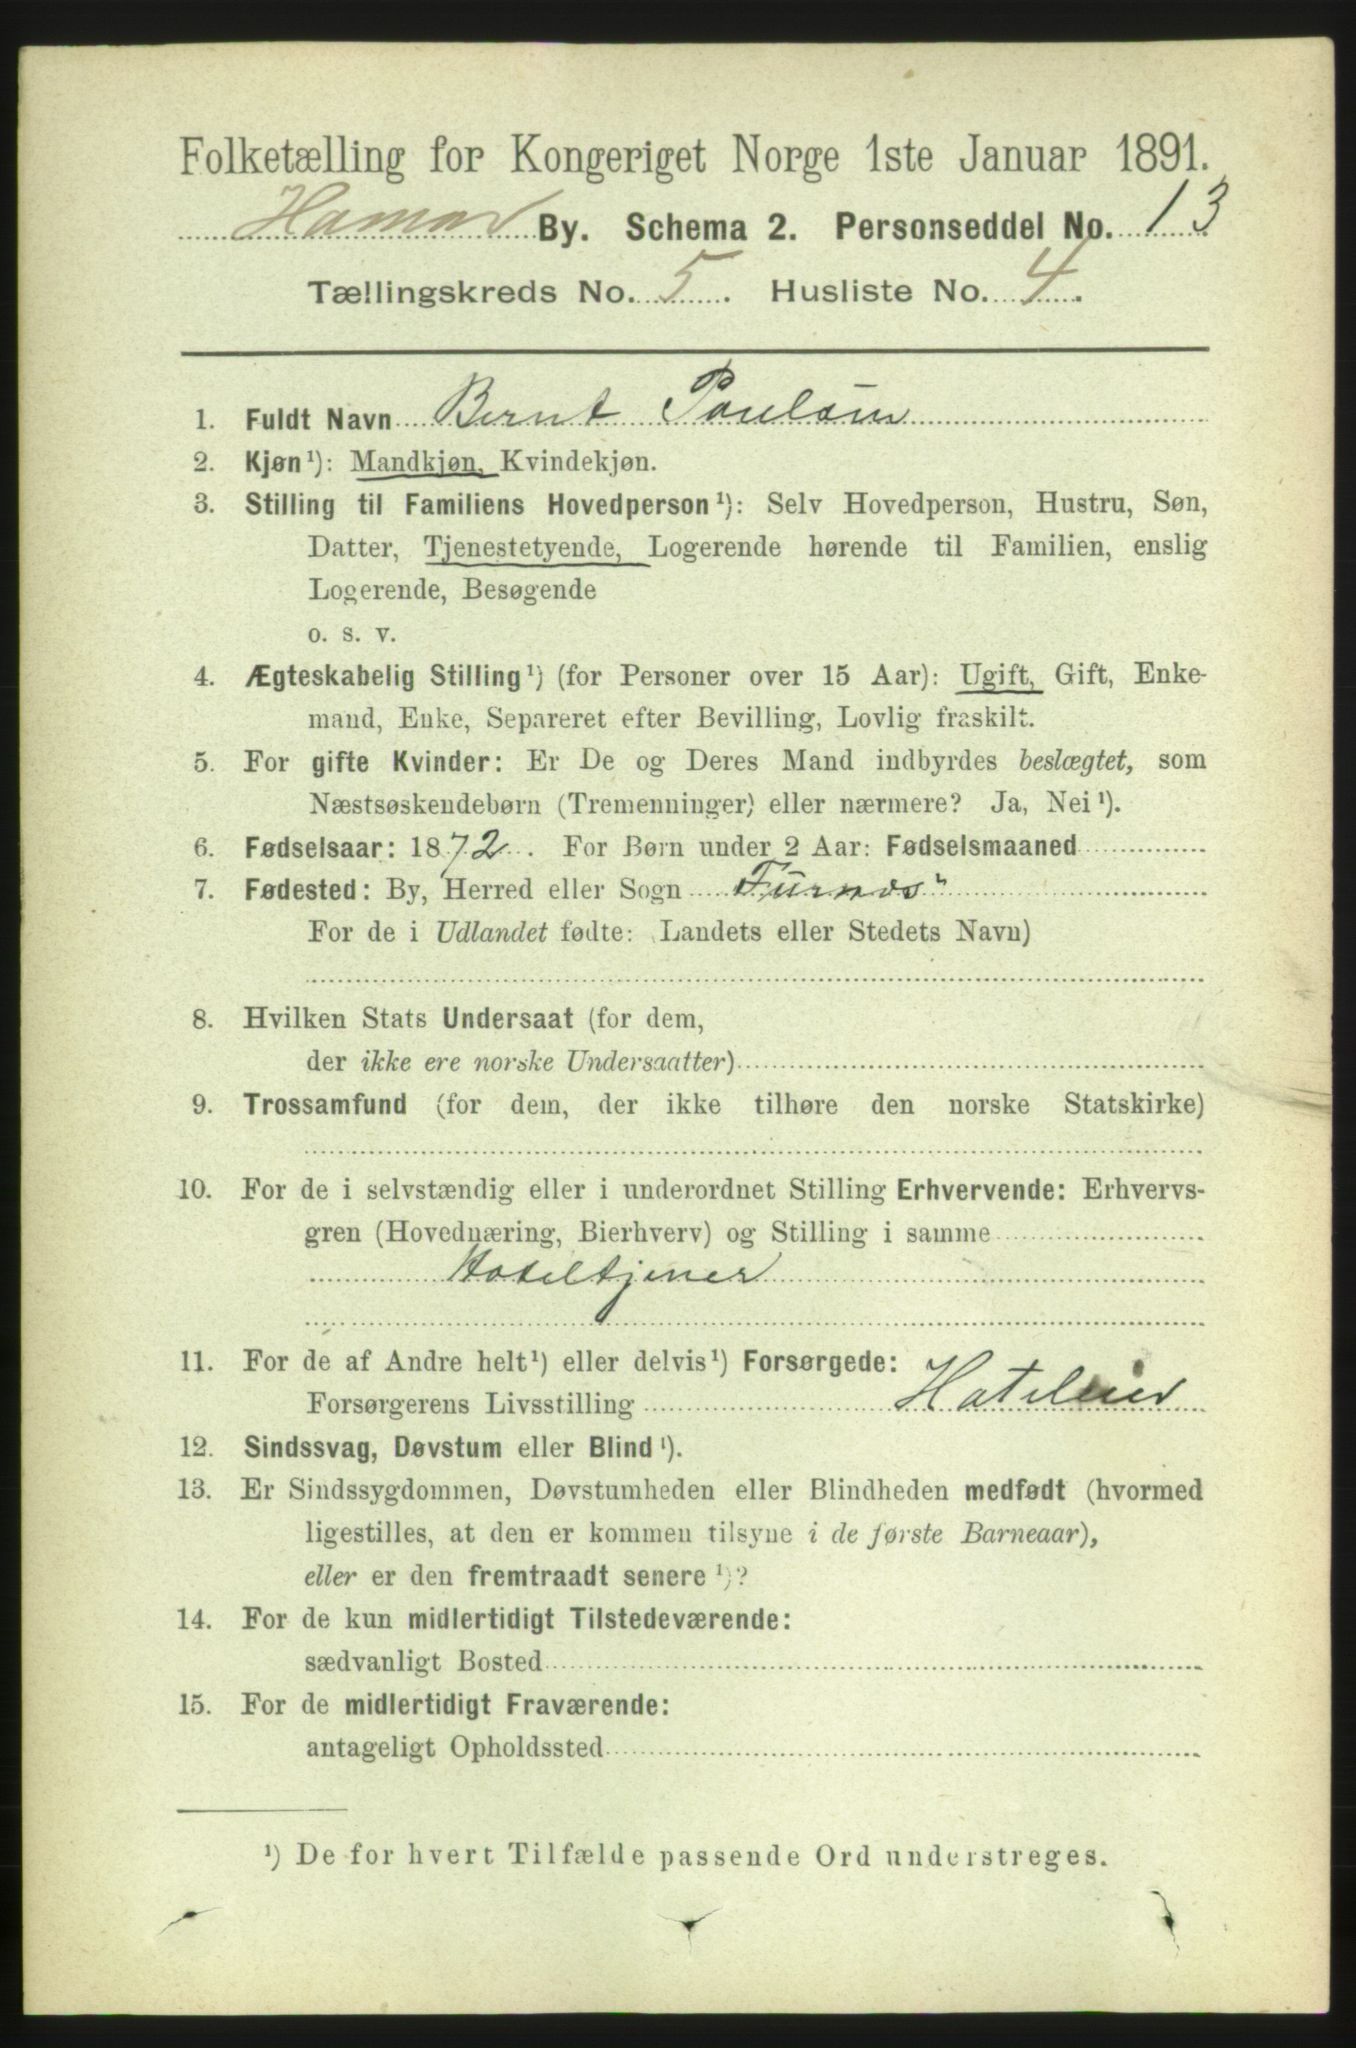 Folketælling for Kongeriget Norge 1ste Januar 1891.
Hamar By. Schema 2. Personseddel No. 13
Tællingskreds No. 5. Husliste No. 4.
1. Fuldt Navn Bernt Poulsen
2. Kjøn¹): Mandkjøn, Kvindekjøn.
3. Stilling til Familiens Hovedperson¹): Selv Hovedperson, Hustru, Søn,
Datter, Tjenestetyende, Logerende hørende til Familien, enslig
Logerende, Besøgende
o. s. v.
4. Ægteskabelig Stilling¹) (for Personer over 15 Aar): Ugift, Gift, Enke-
mand, Enke, Separeret efter Bevilling, Lovlig fraskilt.
5. For gifte Kvinder: Er De og Deres Mand indbyrdes beslægtet, som
Næstsøskendebørn (Tremenninger) eller nærmere? Ja, Nei¹).
6. Fødselsaar: 1872. For Børn under 2 Aar: Fødselsmaaned
7. Fødested: By, Herred eller Sogn Furnes
For de i Udlandet fødte: Landets eller Stedets Navn)
8. Hvilken Stats Undersaat (for dem,
der ikke ere norske Undersaatter)
9. Trossamfund (for dem, der ikke tilhøre den norske Statskirke)
10. For de i selvstændig eller i underordnet Stilling Erhvervende: Erhvervs-
gren (Hovednæring, Bierhverv) og Stilling i samme
Hoteltjener
11. For de af Andre helt¹) eller delvis¹) Forsørgede:
Forsørgerens Livsstilling Hoteleier
12. Sindssvag, Døvstum eller Blind¹).
13. Er Sindssygdommen, Døvstumheden eller Blindheden medfødt (hvormed
ligestilles, at den er kommen tilsyne i de første Barneaar),
eller er den fremtraadt senere¹)?
14. For de kun midlertidigt Tilstedeværende:
sædvanligt Bosted
15. For de midlertidigt Fraværende:
antageligt Opholdssted
¹) De for hvert Tilfælde passende Ord understreges.